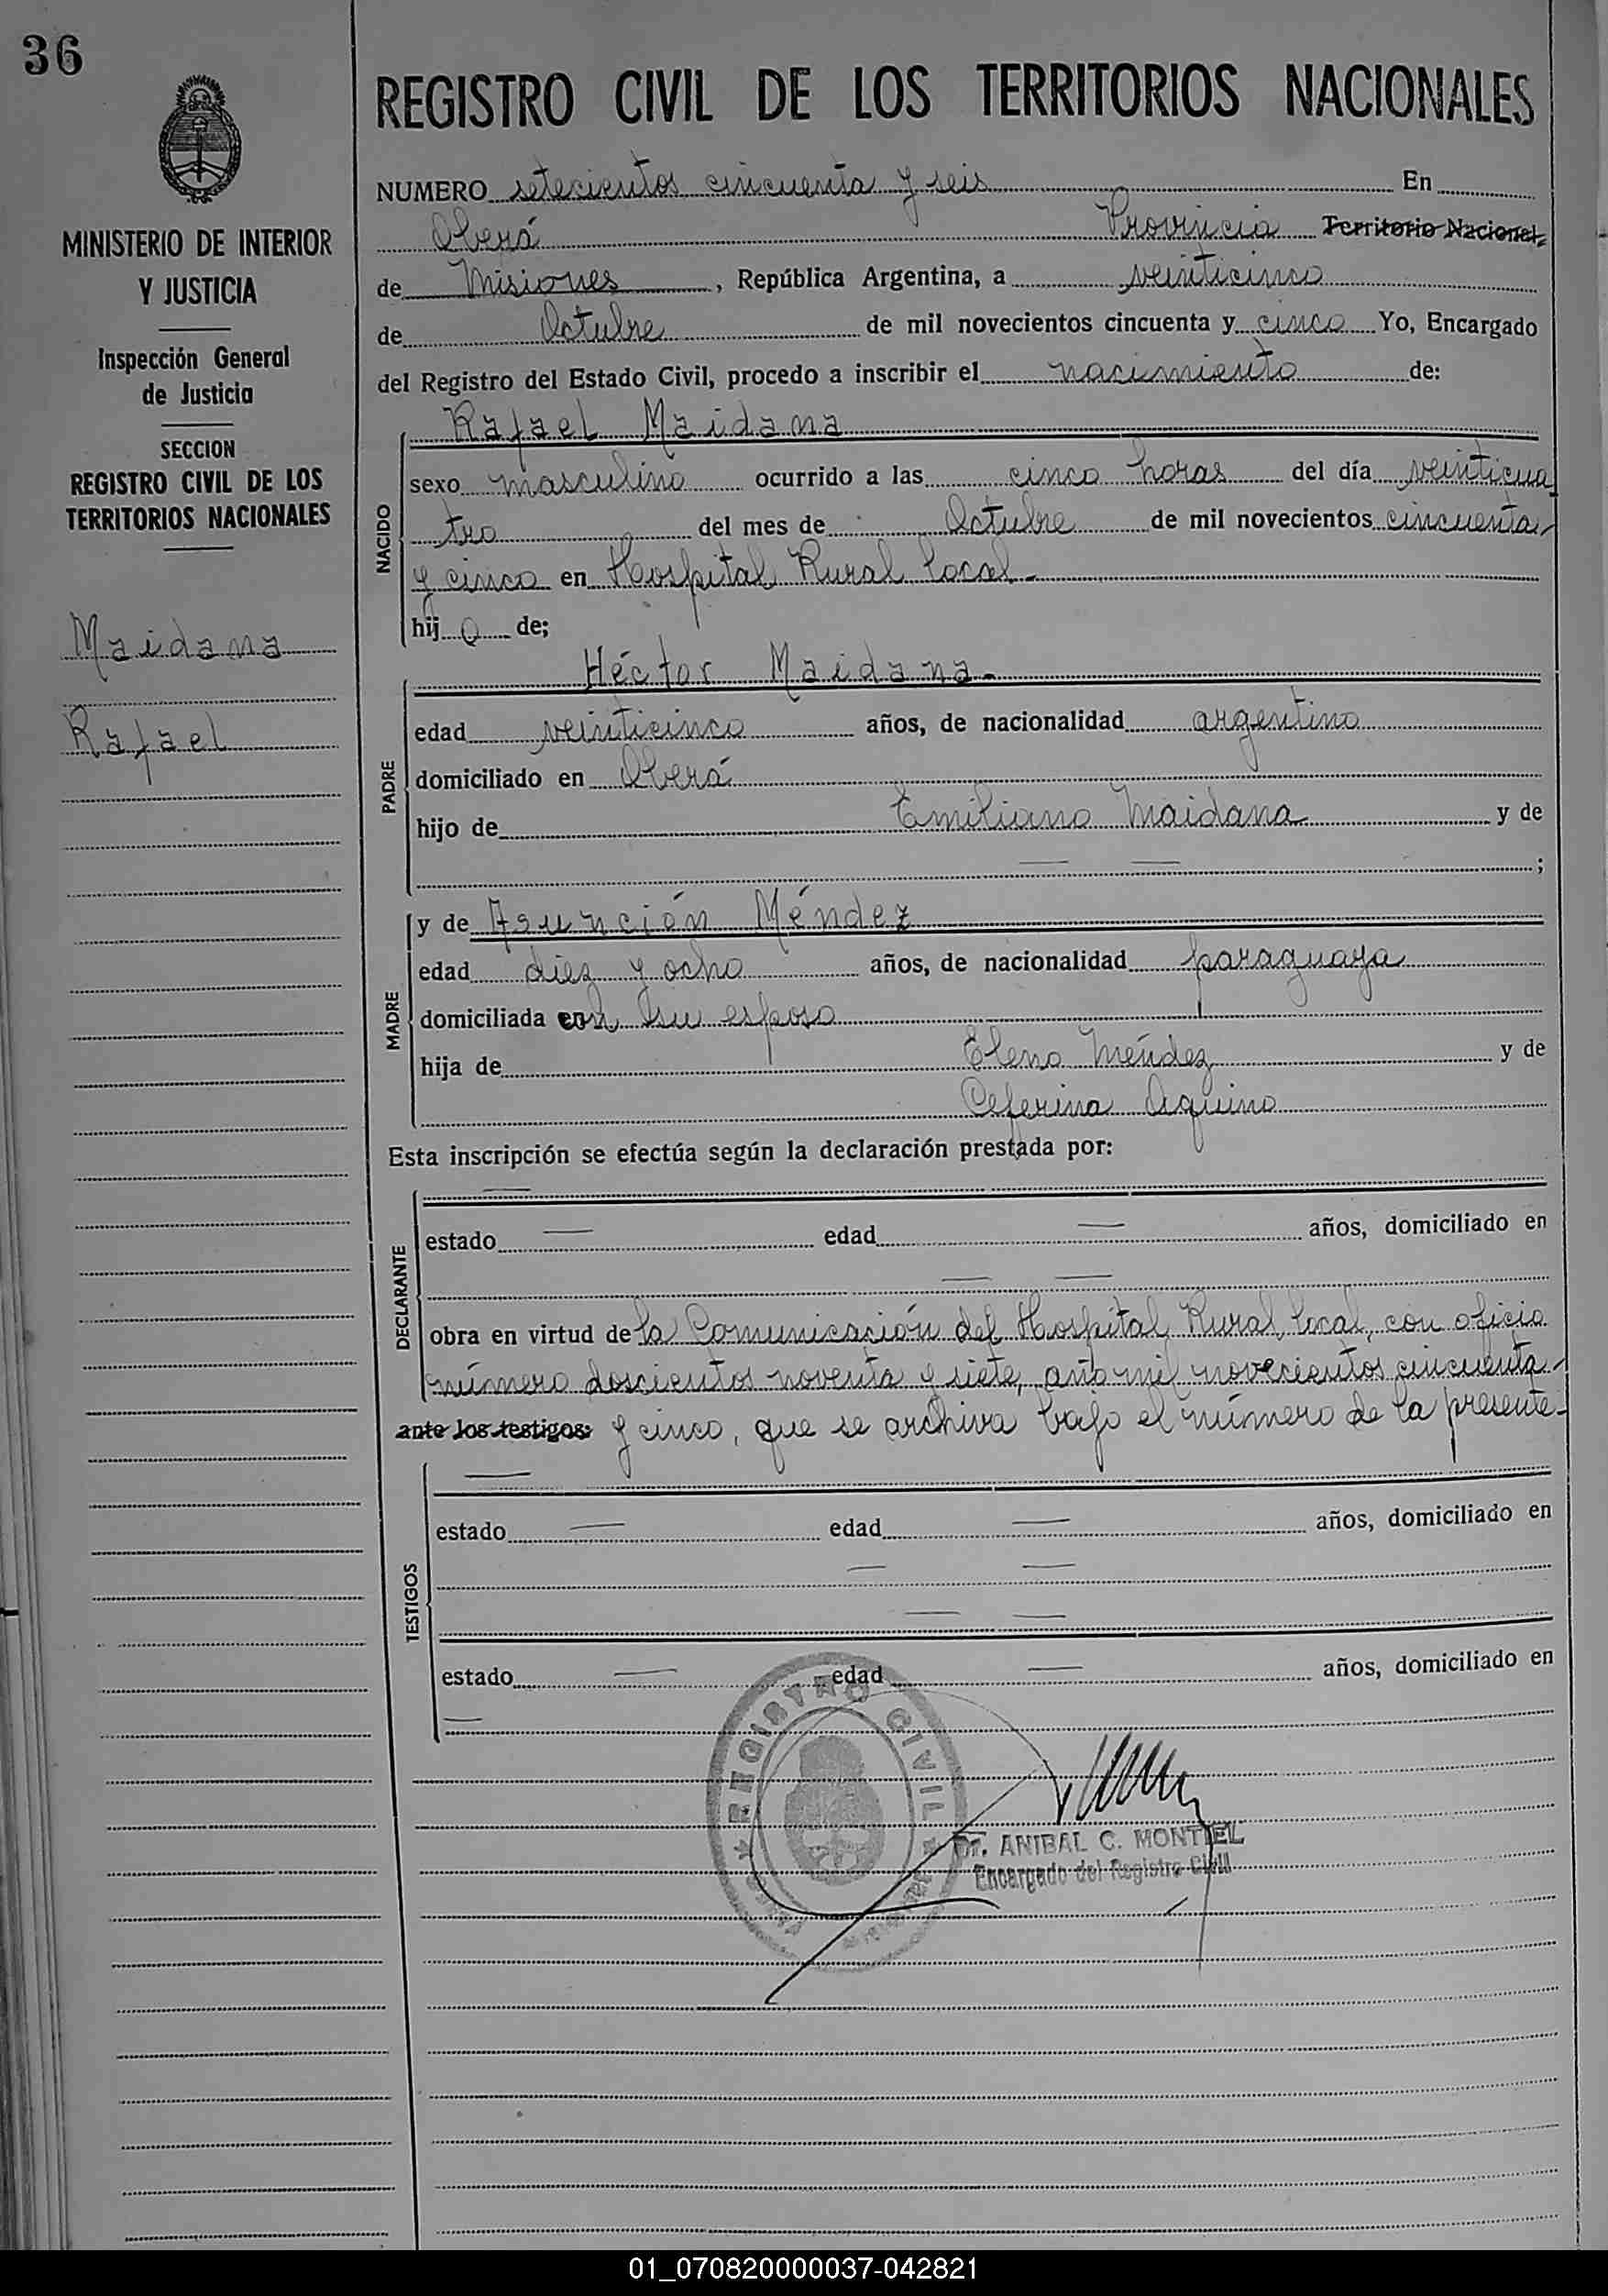 36
MINISTERIO DE INTERIOR
Y JUSTICIA
Inspección General
de Justicia
SECCION
REGISTRO CIVIL DE LOS
TERRITORIOS NACIONALES
Maidana
Rafael
REGISTRO CIVIL DE LOS TERRITORIOS NACIONALES
NUMERO setecientos cincuenta y seis En
Oberá Provincia Territorio Nacional,
de Misiones, República Argentina, a veinticinco
de Octubre de mil novecientos cincuenta y cinco Yo, Encargado
del Registro del Estado Civil, procedo a inscribir el nacimiento de:
Rafael Maidana
NACIDO
sexo masculino ocurrido a las cinco horas del día veinticua
tro del mes de Octubre de mil novecientos cincuenta
y cinco en Hospital Rural local-
hijo de;
Héctor Maidana-
PADRE
edad veinticinco años, de nacionalidad argentino
domiciliado en Oberá
hijo de Emiliano Maidana y de
— — ;
y de Asunción Méndez
MADRE
edad diez y ocho años, de nacionalidad paraguaya
domiciliada con su esposo
hija de Eleno Méndez y de
Ceferina Aquino
Esta inscripción se efectúa según la declaración prestada por:
—
DECLARANTE
estado — edad — años, domiciliado en
— —
obra en virtud de la Comunicación del Hospital Rural local, con oficio
número doscientos noventa y siete, año mil novecientos cincuenta-
ante los testigos: y cinco, que se archiva bajo el número de la presente-
—
TESTIGOS
estado — edad — años, domiciliado en
— —
— —
estado — edad — años, domiciliado en
—
REGISTRO CIVIL
Dr. ANIBAL C. MONTIEL
Encargado del Registro Civil
01_070820000037-042821